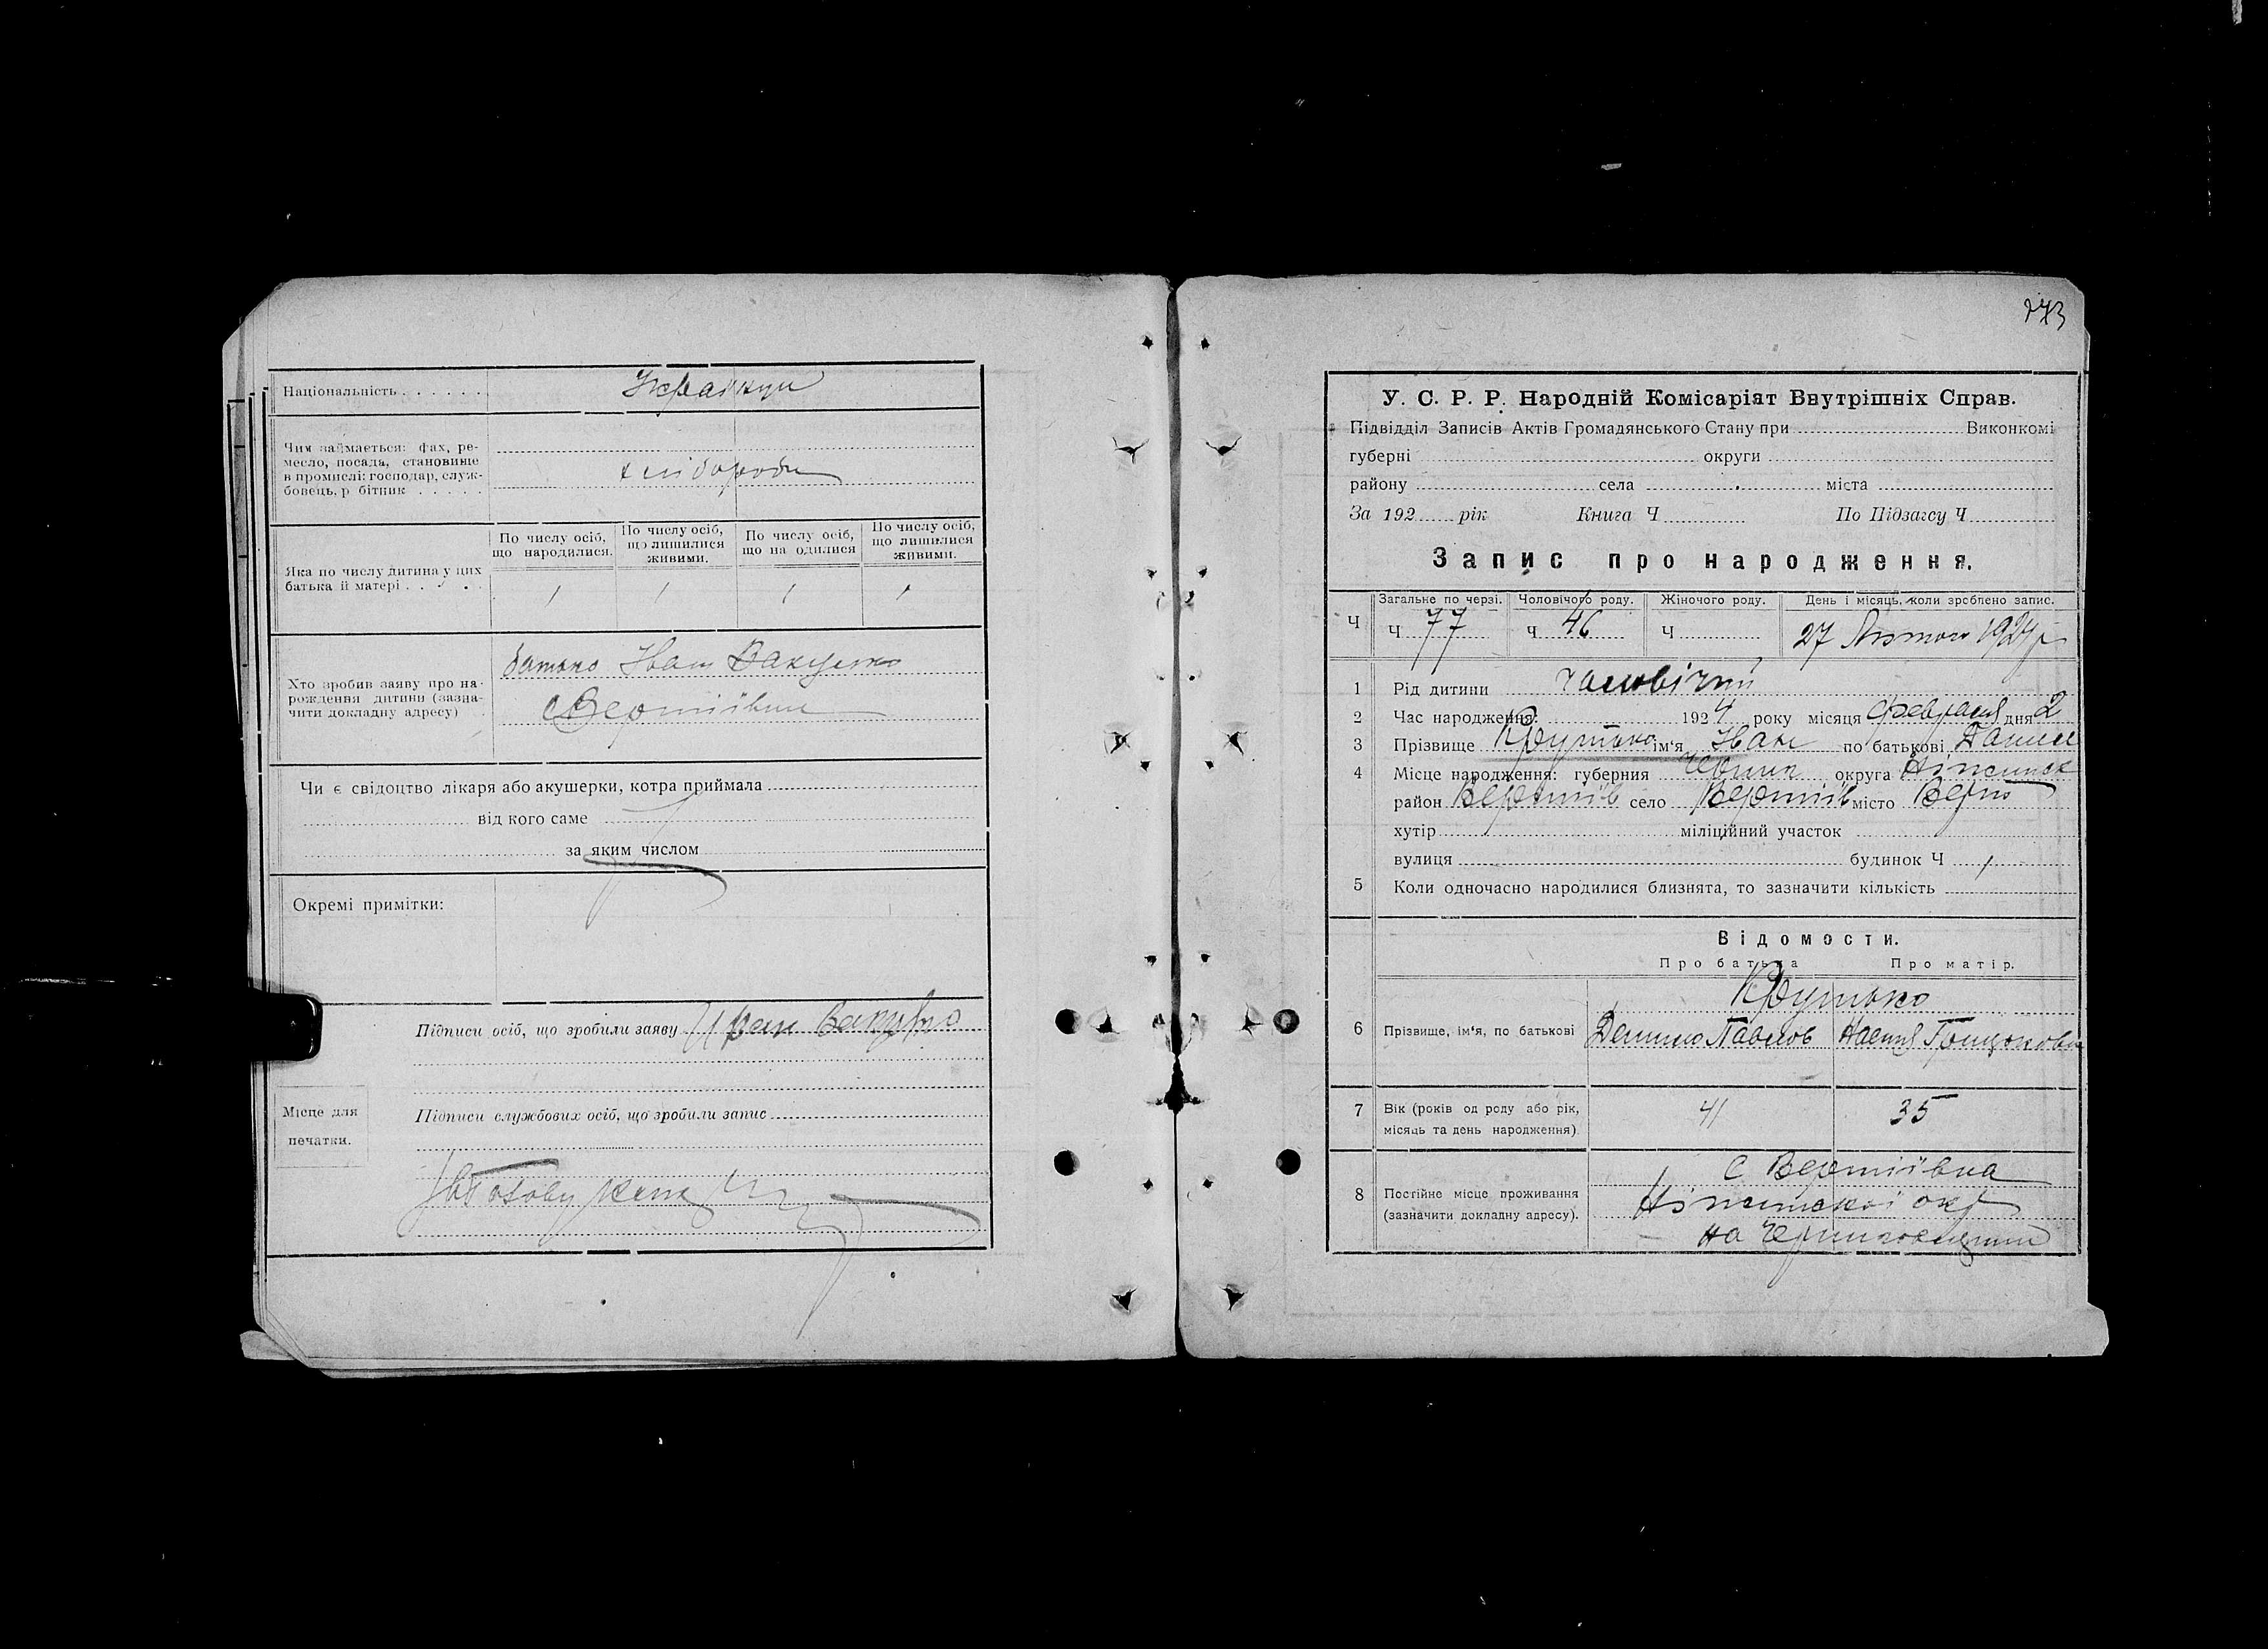 Національність . . . . . . Українци
Чим займається: фах, ре-
месло, посада, становище
в промислі: господар, служ-
бовець, р бітник . . . . .
хлібороби
По числу осіб, що народилися.
По числу осіб, що лишилися живими.
По числу осіб, що на одилися
По числу осіб, що лишилися живими.
Яка по числу дитина у цих
батька й матері . . . .
1 1 1 1
Хто зробив заяву про на-
рождення дитини (зазна-
чити докладну адресу)
батько Иван Вакуленко
с Вертіївки
Чи є свідоцтво лікаря або акушерки, котра приймала
від кого саме
за яким числом
Окремі примітки:
Підписи осіб, що зробили заяву Иван
Підписи службових осіб, що зробили запис
Місце для
печатки.
273
У. С. Р. Р. Народній Комісаріят Внутрішніх Справ.
Підвідділ Записів Актів Громадянського Стану при Виконкомі
губерні округи
району села міста
За 192 рік Книга Ч По Підзагсу Ч
Запис про народження.
Загальне по черзі. Чоловічого роду. Жіночого роду. День і місяць, коли зроблено запис.
Ч Ч 77 Ч 46 Ч 27 Лютого 1924 р
1 Рід дитини чоловічий
2 Час народження: 1924 року місяця февраля дня 2
3 Прізвище Крутько ім'я Иван по батькові Данил
4 Місце народження: губерния Черниг округа Ніжинск
район Вертіїв село Вертіїв місто Верт
хутір міліційний участок
вулиця будинок Ч
5 Коли одночасно народилися близнята, то зазначити кількість
Відомости.
Про батька Про матір.
Крутько
6 Прізвище, ім'я, по батькові Данило Павлов
7 Вік (років од роду або рік,
місяць та день народження)
41 35
8 Постійне місце проживання
(зазначити докладну адресу).
с Вертіївка
Ніжинскоі окр
на Черниговщині